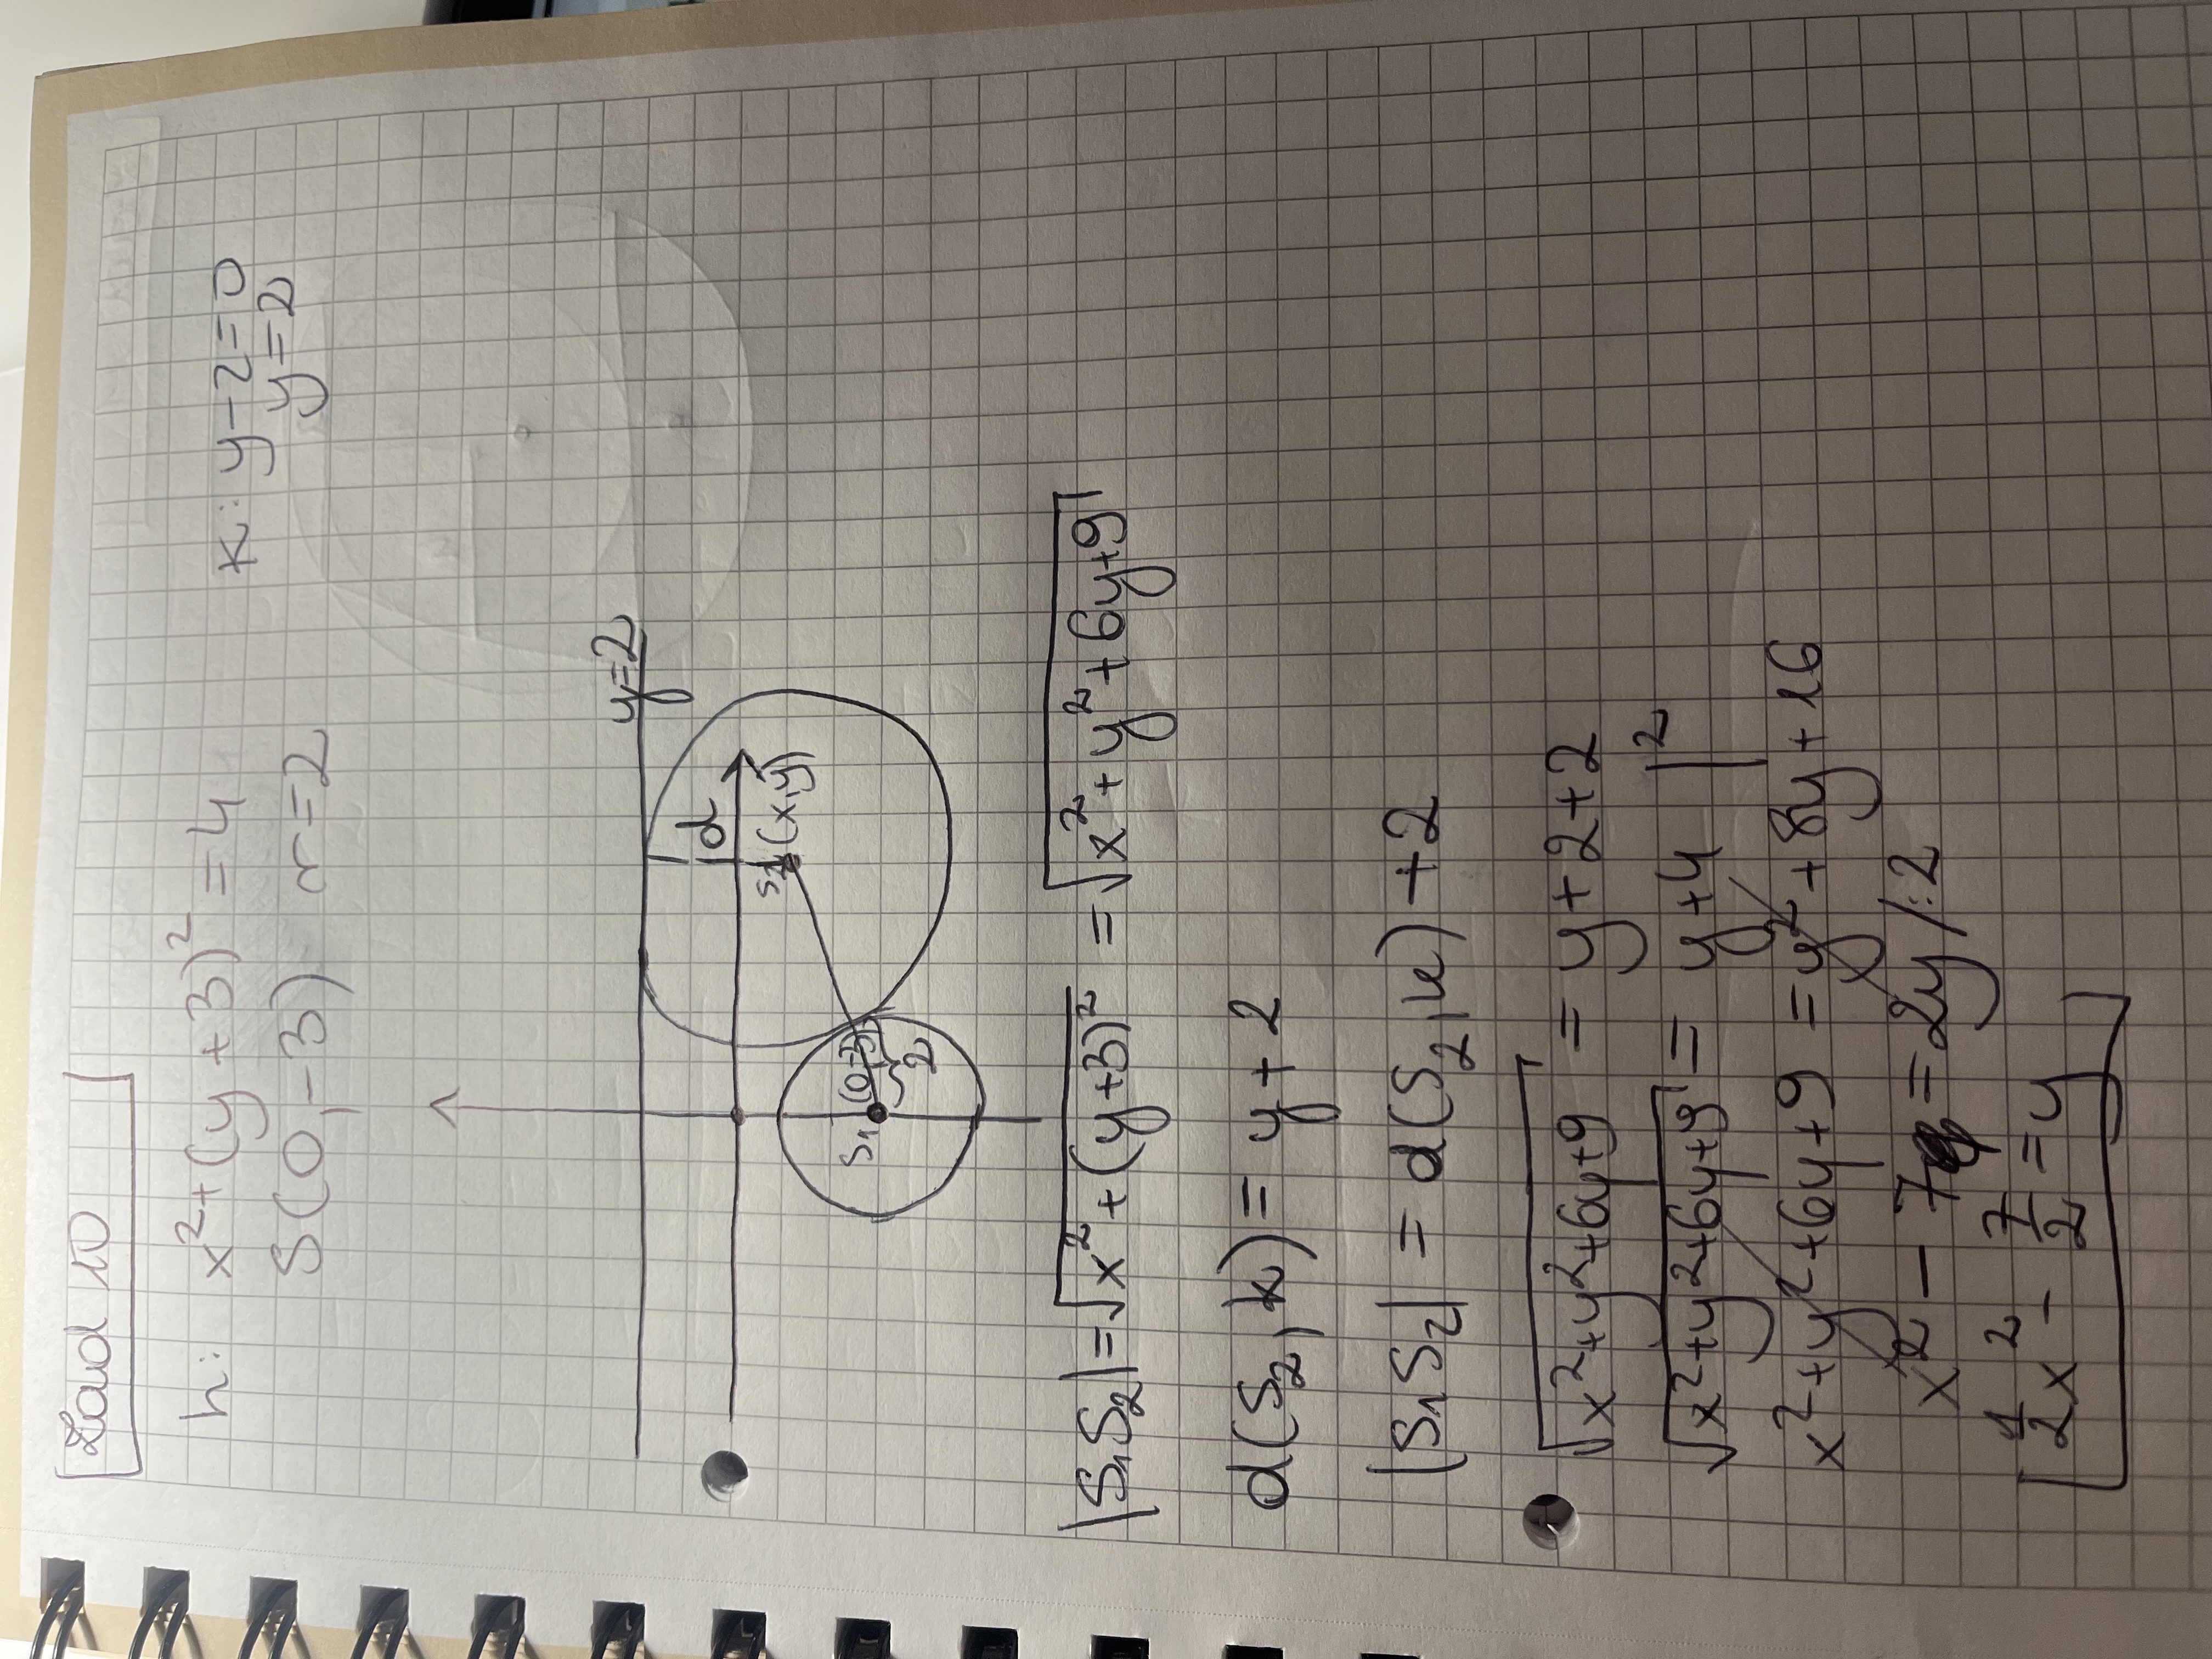 Zad 10
h: x²+(y+3)²=4 k: y-2=0
S(0,-3) r=2 y=2
y=2
d
S₂(x,y)
S₁(0,-3)
2
|S₁S₂|=√x²+(y+3)² = √x²+y²+6y+9
d(S₂,k)=y+2
|S₁S₂| = d(S₂,k)+2
√x²+y²+6y+9 = y+2+2
√x²+y²+6y+9 = y+4 |²
x²+y²+6y+9 = y²+8y+16
x²-7=2y /:2
½x²-7/2=y